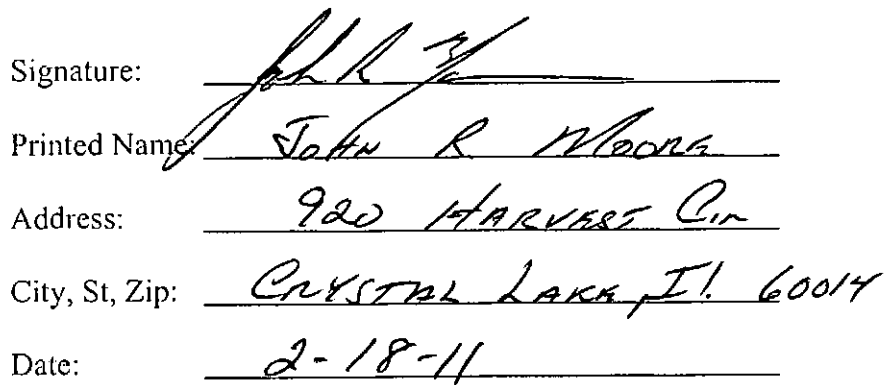 Signature: John R M
Printed Name: John R Moore
Address: 920 Harvest Cir
City, St, Zip: Crystal Lake, Il. 60014
Date: 2-18-11